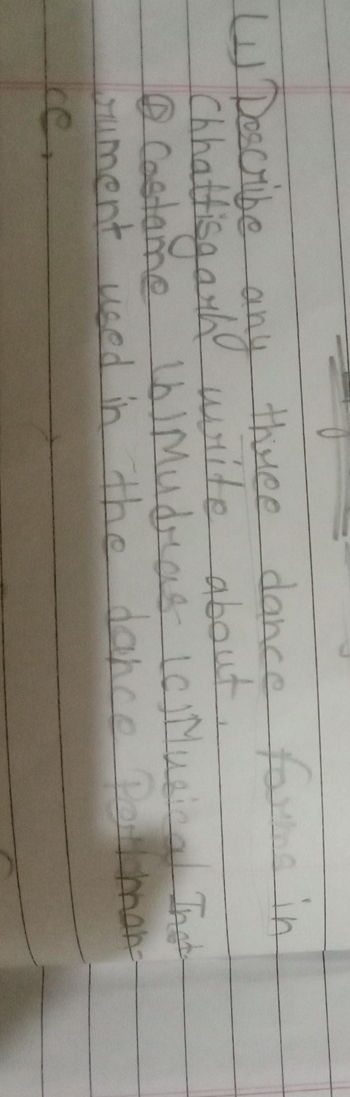 (1) Describe any three dance forms in
Chhattisgarh write about,
(a) Costame (b) Mudras (c) Musical Inst
rument used in the dance Performan-
ce.